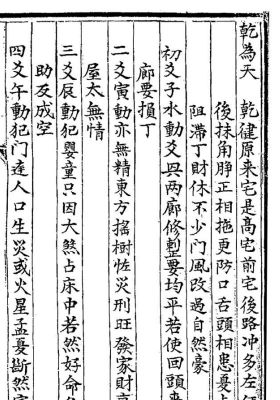 乾為天　乾健原来宅是高宅前宅後路冲多左
後抹角胮正相拖更防口舌頭相患憂
阻滯丁財休不少門風改過自然豪
初爻子水動爻與两廊修整要均平若使回頭
廊要損丁
二爻寅動亦無精東方摇樹恠災刑旺發家財
屋太無情
三爻辰動犯嬰童只因大煞占床中若然好命
助及成空
四爻午動犯门逹人口生災或火星孟憂斷然